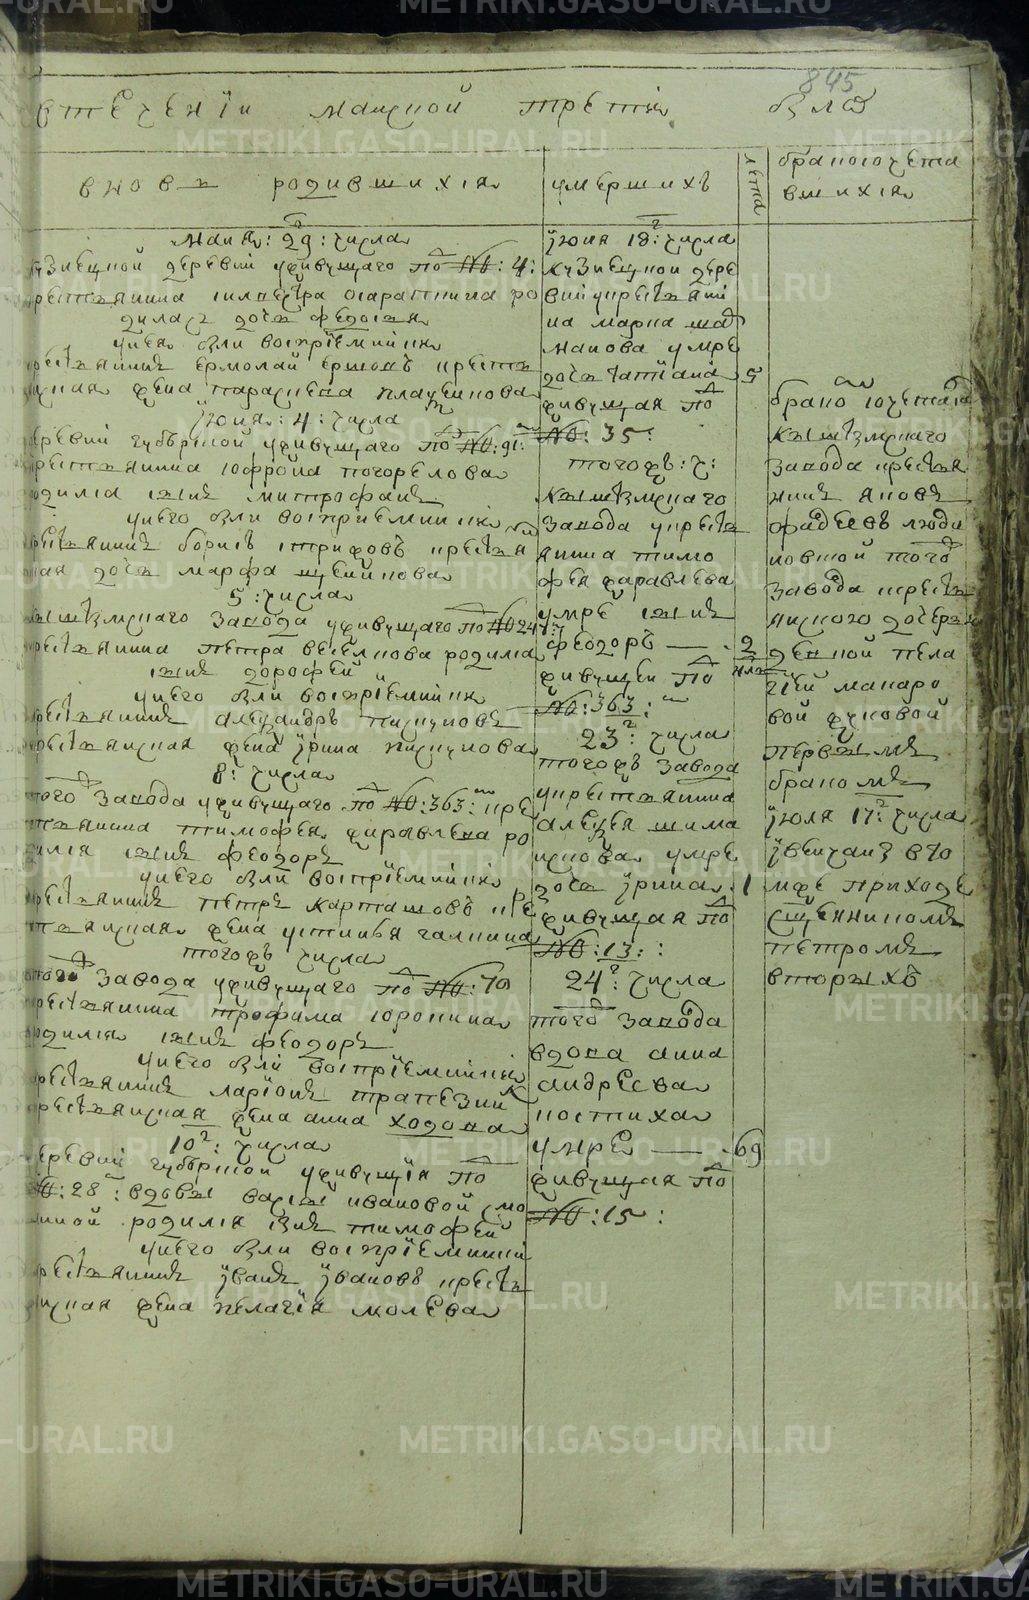 845
втечении майской трети
вновь родившихся
умершихъ
лета
бракосочета
вшихся
маия: 29: числа
кузнецкой деревни уживущаго по №: 4:
крестьянина силвестра
родилась дочь федосья
унея были восприемники
крестьянинъ ермолай ершовъ крестья
нская жена параскева плаксинова
июня: 4: числа
деревни губерской уживущаго по №: 91:
крестьянина софрона погорелова
родился сынъ митрофанъ
унего были восприемники
крестьянинъ борисъ трифовъ крестьян
ская дочь марфа
5: числа
кыштымскаго завода уживущаго по № 247:
крестьянина петра родился
сынъ дорофей
унего были восприемники
крестьянинъ александръ пискуновъ
крестьянская жена ирина пискунова
8: числа
того завода уживущаго по №: 363: кре
стьянина тимофея журавлева ро
дился сынъ феодоръ
унего были восприемники
крестьянинъ петръ карташовъ кре
стьянская жена устинья галкина
тогожъ числа
того завода уживущаго по №: 70
крестьянина трофима сорокина
родился сынъ феодоръ
унего были восприемники
крестьянинъ ларионъ трапезник
крестьянская жена анна ходова
10: числа
деревни губерской уживущия по
№: 28: вдовы васы ивановой
родился сынъ тимофей
унего были восприемники
крестьянинъ иванъ ивановъ крестья
нская жена пелагия молева
июня 18: числа
кузнецкой дере
вни укрестьяни
на марка шад
макова умре
дочь татиана 5
живущая по
№: 35:
тогожъ: ч:
кыштымскаго
завода укресть
янина тимо
фея журавлева
умре сынъ
феодоръ — 2
живущей по
№: 363:
23: числа
тогожъ завода
укрестьянина
алексея шима
нскова умре
дочь ирина 1
живущая по
№: 13:
24: числа
того завода
вдова анна
андреева
костиха
умре — 69
живущая по
№: 15:
брако сочетался
кыштымскаго
завода крестья
нинъ яковъ
фадеевъ
повской того
завода кресть
янскою дочерью
девкой пела
гией макаро
вой жуковой
первымъ
бракомъ
июля 17: числа
ивенчанъ вто
мже приходе
священникомъ
петромъ
вторыхъ
METRIKI.GASO-URAL.RU